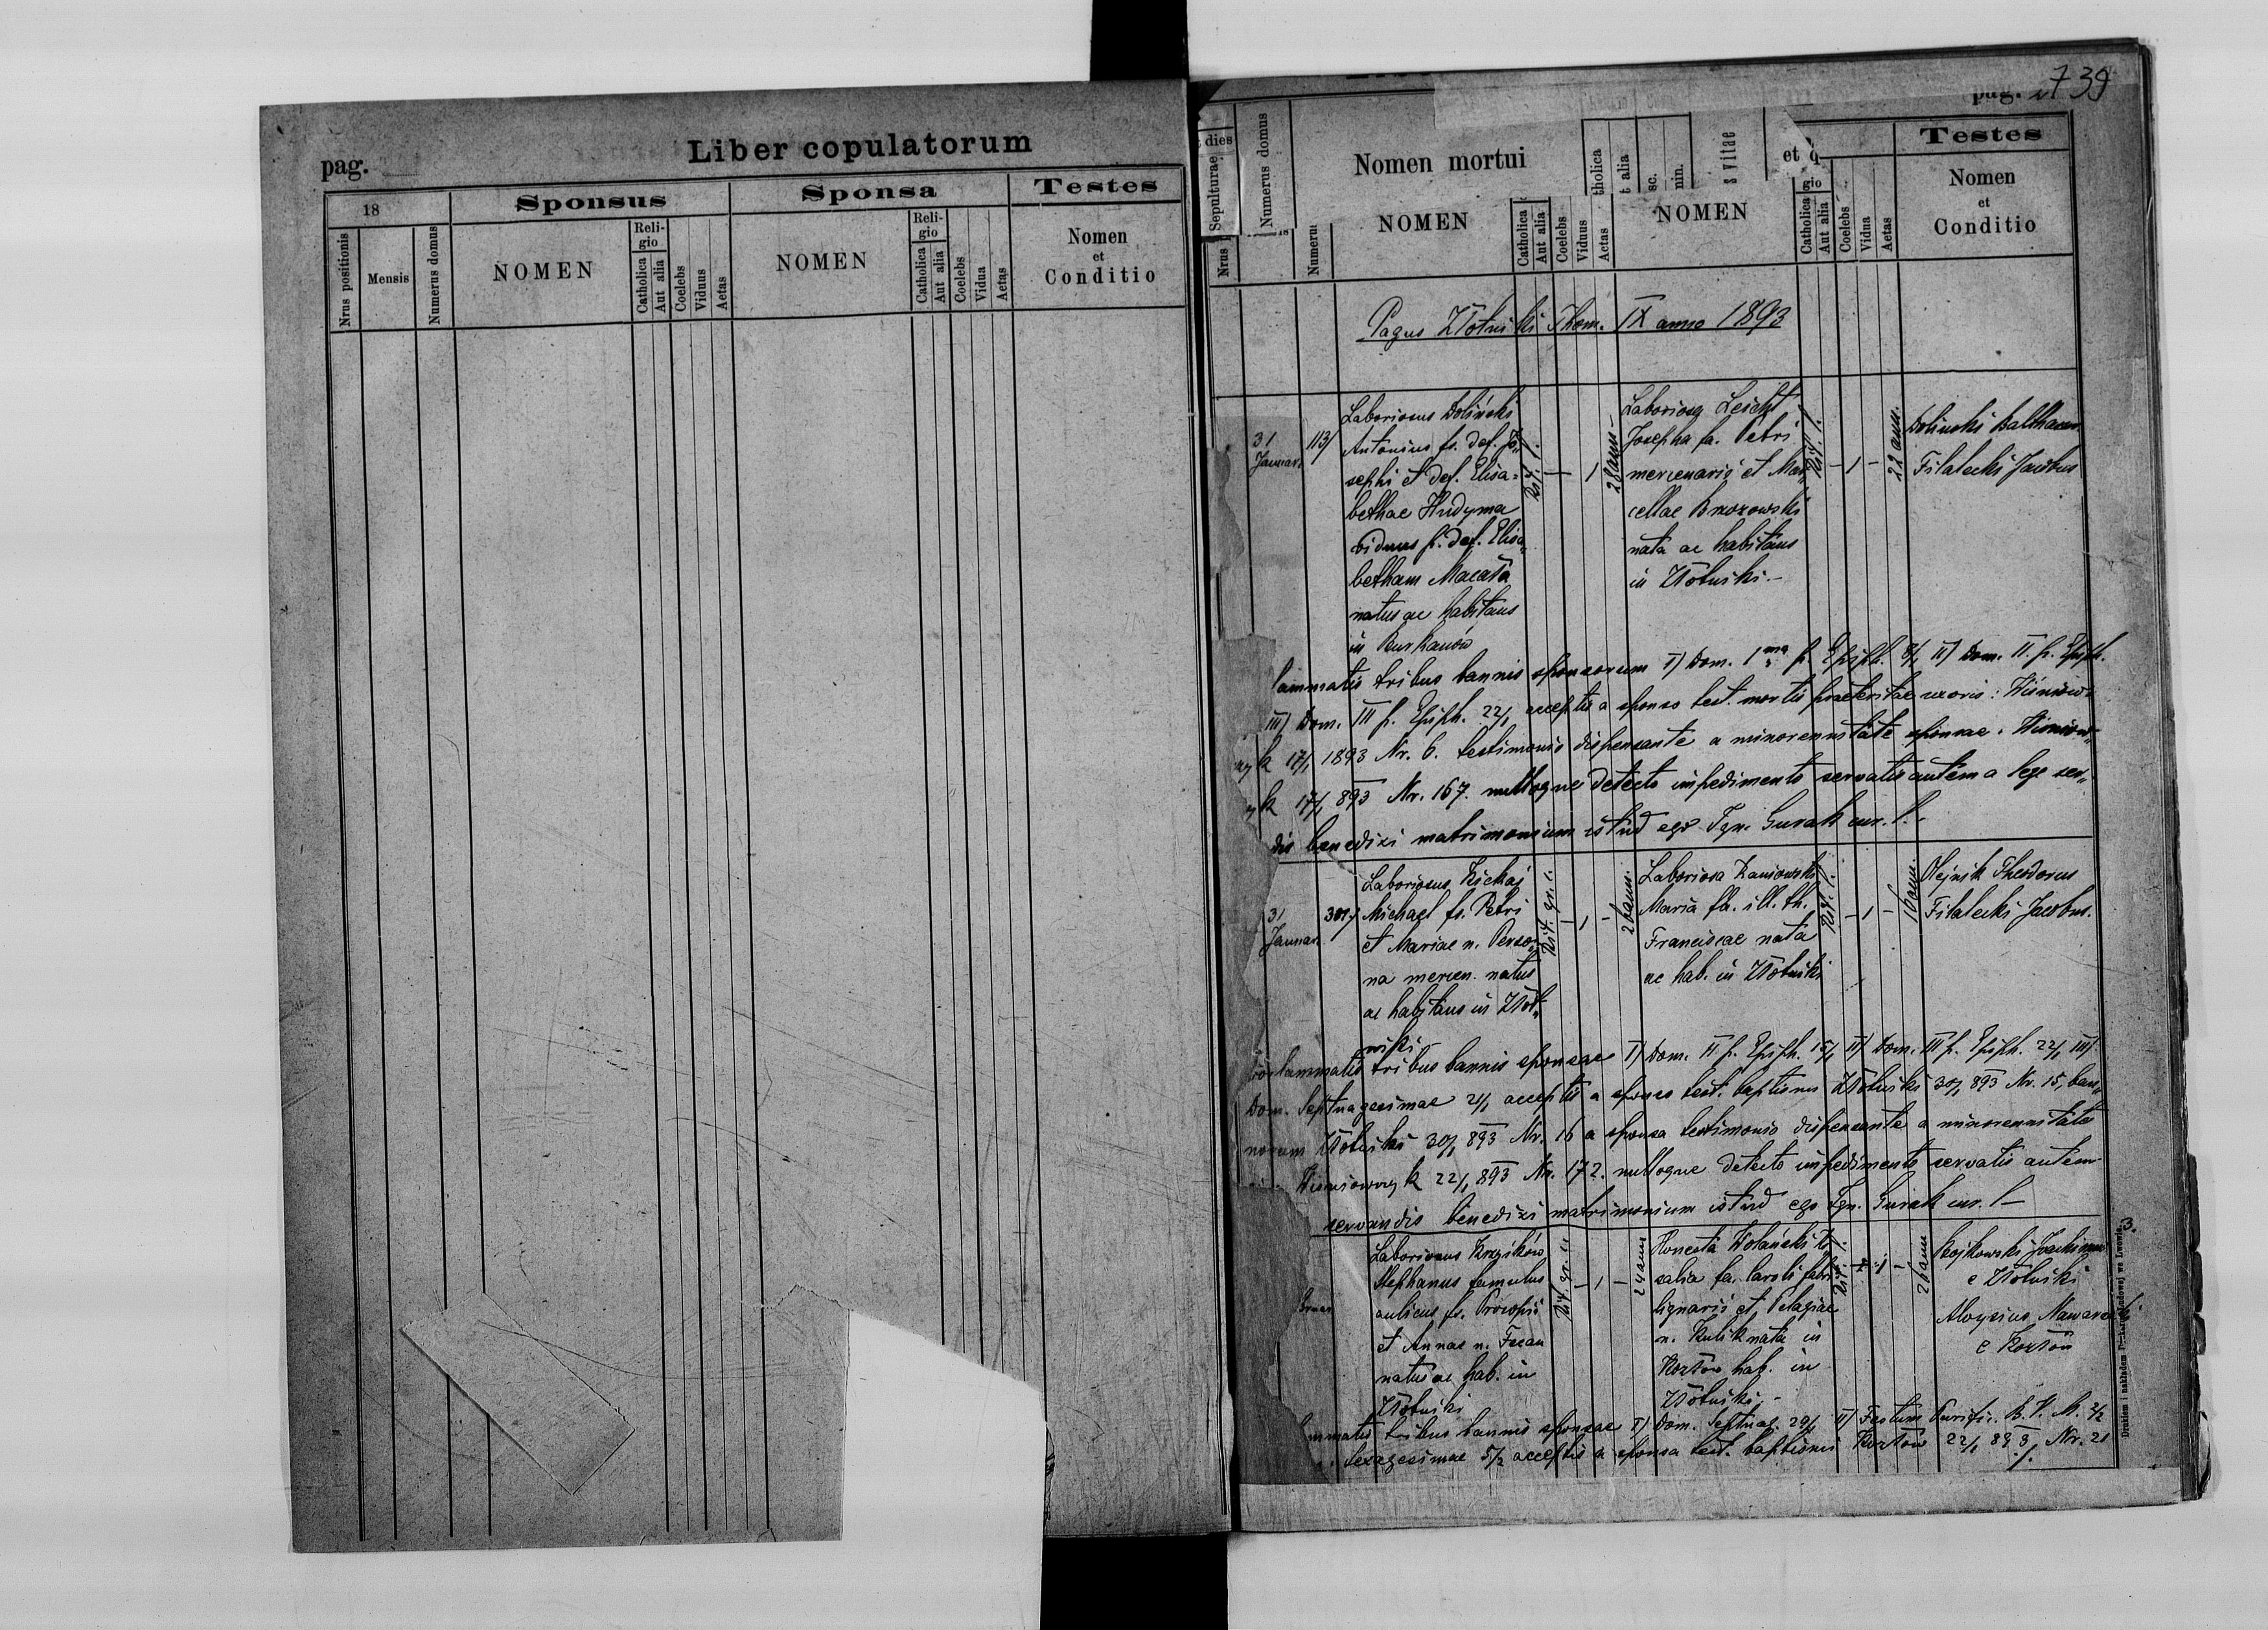 pag.
Liber copulatorum
18
Sponsus
Sponsa
Testes
Nrus positionis
Mensis
Numerus domus
NOMEN
Reli-
gio
Catholica
Aut alia
Coelebs
Viduus
Aetas
NOMEN
Reli-
gio
Catholica
Aut alia
Coelebs
Vidua
Aetas
Nomen
et
Conditio
pag. 739
dies
Sepulturae
Numerus domus
Nomen mortui
tholica
t alia
sc.
nin.
s vitae
et q
Testes
Nrus
Numeru
NOMEN
Catholica
Aut alia
Coelebs
Viduus
Aetas
NOMEN
gio
Catholica
Aut alia
Coelebs
Vidua
Aetas
Nomen
et
Conditio
Pagus Złotniki Thom. IX anno 1893
31
Januar.
113/
Laboriosus Doliński
Antonius fs. def. Jo„
sephi et def. Elisa=
bethae Hudyma
viduus p. def. Elisa„
betham Macała
natus ac habitans
in Burkanów
Rit. l.
1
28 ann.
Laboriosa Leicht
Josepha fa. Petri
mercenarii et Mar„
cellae Brzozowski
nata ac habitans
in Złotniki.-
Rit. l.
1
22 ann.
Doliński Balthasar
Filalecki Jacobus
lammatis tribus bannis sponsorum I) Dom. 1ma p. Epiph. 8/1 II) Dom. II. p. Epiph.
III) Dom. III p. Epiph. 22/1 acceptis a sponso test. mortis praeteritae uxoris: Wiśniow„
zyk 17/1 1893 Nr. 6. testimonio dispensante a minorennitate sponsae. Wiśniow„
zyk 17/1 893 Nr. 167. nulloque detecto impedimento servatis autem a lege ser„
dis benedixi matrimonium istud ego Ign. Gurak cur. l.-
31
Januar.
301/
Laboriosus Kichaj
Michael fs. Petri
et Mariae n. Perso„
na mercen. natus
ac habitans in Złot„
niki
Rit. gr. c.
1
26 ann.
Laboriosa Kaniowski
Maria fa. ill. th.
Franciscae nata
ac hab. in Złotniki
Rit. l.
1
16 ann.
Olejnik Theodorus
Filalecki Jacobus.
roclammatis tribus bannis sponsae I) Dom. II p. Epiph. 15/1 II) Dom. III p. Epiph. 22/1 III)
Dom. Septuagesimae 29/1 acceptis a sponso test. baptismi Złotniki 30/1 893 Nr. 15, ban„
norum Złotniki 30/1 893 Nr. 16 a sponsa testimonio dispensante a minorennitate
Wiśniowczyk 22/1 893 Nr. 172. nulloque detecto impedimento servatis autem
servandis benedixi matrimonium istud ego Ign. Gurak cur. l-
bruar.
Laboriosus
Stephanus famulus
aulicus fs. Procopii
et Annae n.
natus ac hab. in
Złotniki
Rit. gr. c.
1
24 ann
Honesta Wolański Ro
salia fa. Caroli fabri
lignarii et Pelagiae
n. Kulik nata in
Kozłów hab. in
Złotniki -
Rit. l.
1
26 ann
Joachimus
e Złotniki
Aloysius
e Kozłów
mmatis tribus bannis sponsae I) Dom. Septuag. 29/1 II) Festum Purific. B. V. M. 2/2
Sexagesimae 5/2 acceptis a sponsa test. baptismi Kozłów 22/1 893 Nr. 21
./.
3.